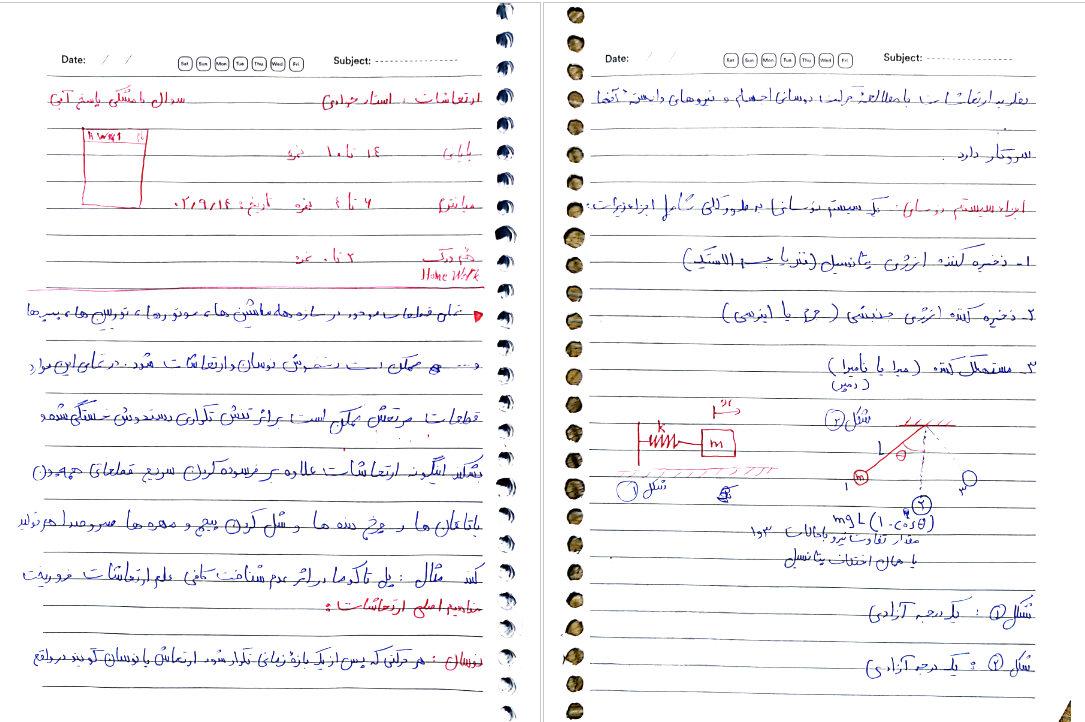 Date: / /
Sat Sun Mon Tue Thu Wed Fri
Subject:
ارتعاشات ، استاد جوادی سوال با مشکی پاسخ آبی
پایانی ۱۴ تا ۱۰ نمره
میانترم ۶ تا ۴ نمره تاریخ: ۰۲/۹/۱۴
هم ورک ۲ تا ۰ نمره
Home Work
تمامی قطعات موجود در سازه ها، ماشین ها، موتورها، توربین ها، پمپ ها
و ... ممکن است دستخوش نوسان و ارتعاشات شود. در تمامی این موارد
قطعات مرتعش ممکن است براثر تنش تکراری دستخوش خستگی شده و
بشکند اینگونه ارتعاشات علاوه بر فرسوده کردن سریع قطعاتی همچون
یاتاقان ها و چرخ دنده ها و شل کردن پیچ و مهره ها سروصدا هم تولید
کند مثال : پل تاکوما در اثر عدم شناخت کافی علم ارتعاشات فروریخت
مفاهیم اصلی ارتعاشات :
نوسان : هر حرکتی که پس از یک بازهٔ زمانی تکرار شود ارتعاش یا نوسان گویند در واقع
Date: / /
Sat Sun Mon Tue Thu Wed Fri
Subject:
نظریه ارتعاشات با مطالعهٔ حرکت نوسانی اجسام و نیروهای وابسته به آنها
سروکار دارد .
اجزاء سیستم نوسانی: یک سیستم نوسانی به طور کلی شامل اجزاء زیر است:
۱- ذخیره کننده انرژی پتانسیل (فنر یا جسم الاستیک)
۲- ذخیره کننده انرژی جنبشی (جرم یا اینرسی)
۳- مستهلک کننده (میرا یا نامیرا)
(دمپر)
x
k
m
شکل ۱
شکل ۲
L
θ
m
۱
۲
۳
mgL(1-cosθ)
مقدار تفاوت نیرو با حالات ۳و۱
یا همان اختلاف پتانسیل
شکل ۱ : یک درجه آزادی
شکل ۲ : یک درجه آزادی